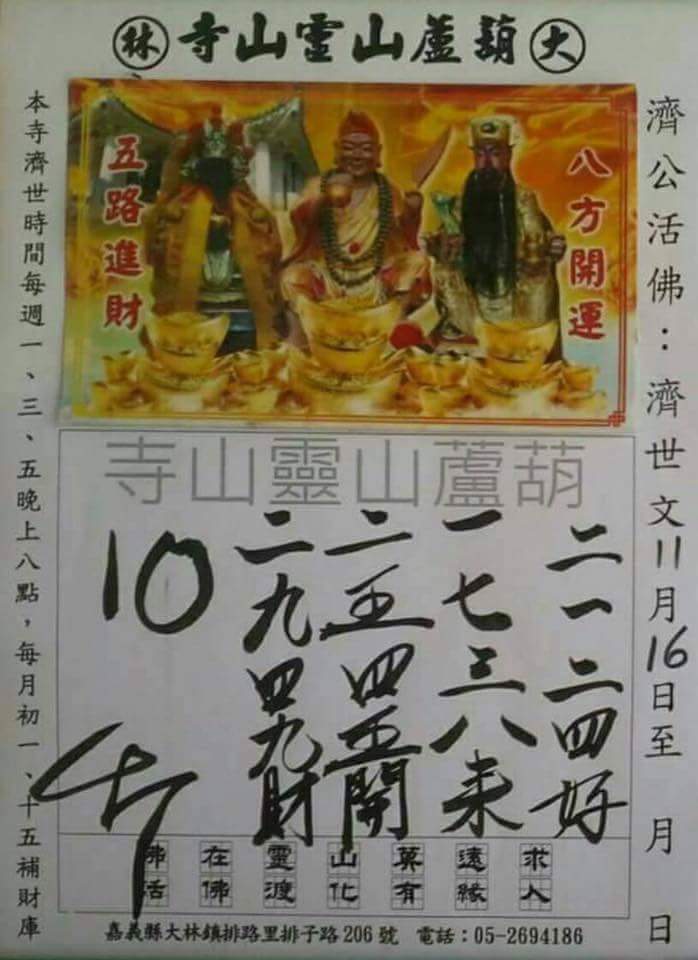 大葫蘆山靈山寺林
八方開運
五路進財
濟公活佛：濟世文11月16日至　月　日
葫蘆山靈山寺
二一二四好
一七三八来
二五四五開
二九四九財
10
佛在靈山莫遠求
活佛渡化有緣人
本寺濟世時間每週一、三、五晚上八點，每月初一、十五補財庫
嘉義縣大林鎮排路里排子路206號　電話：05-2694186